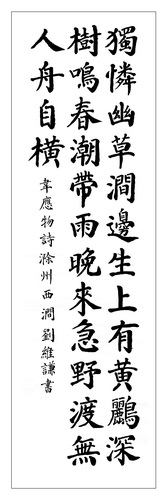 獨憐幽草澗邊生上有黄鸝深
樹鳴春潮帶雨晚來急野渡無
人舟自橫
韋應物詩滁州西澗劉維謙書